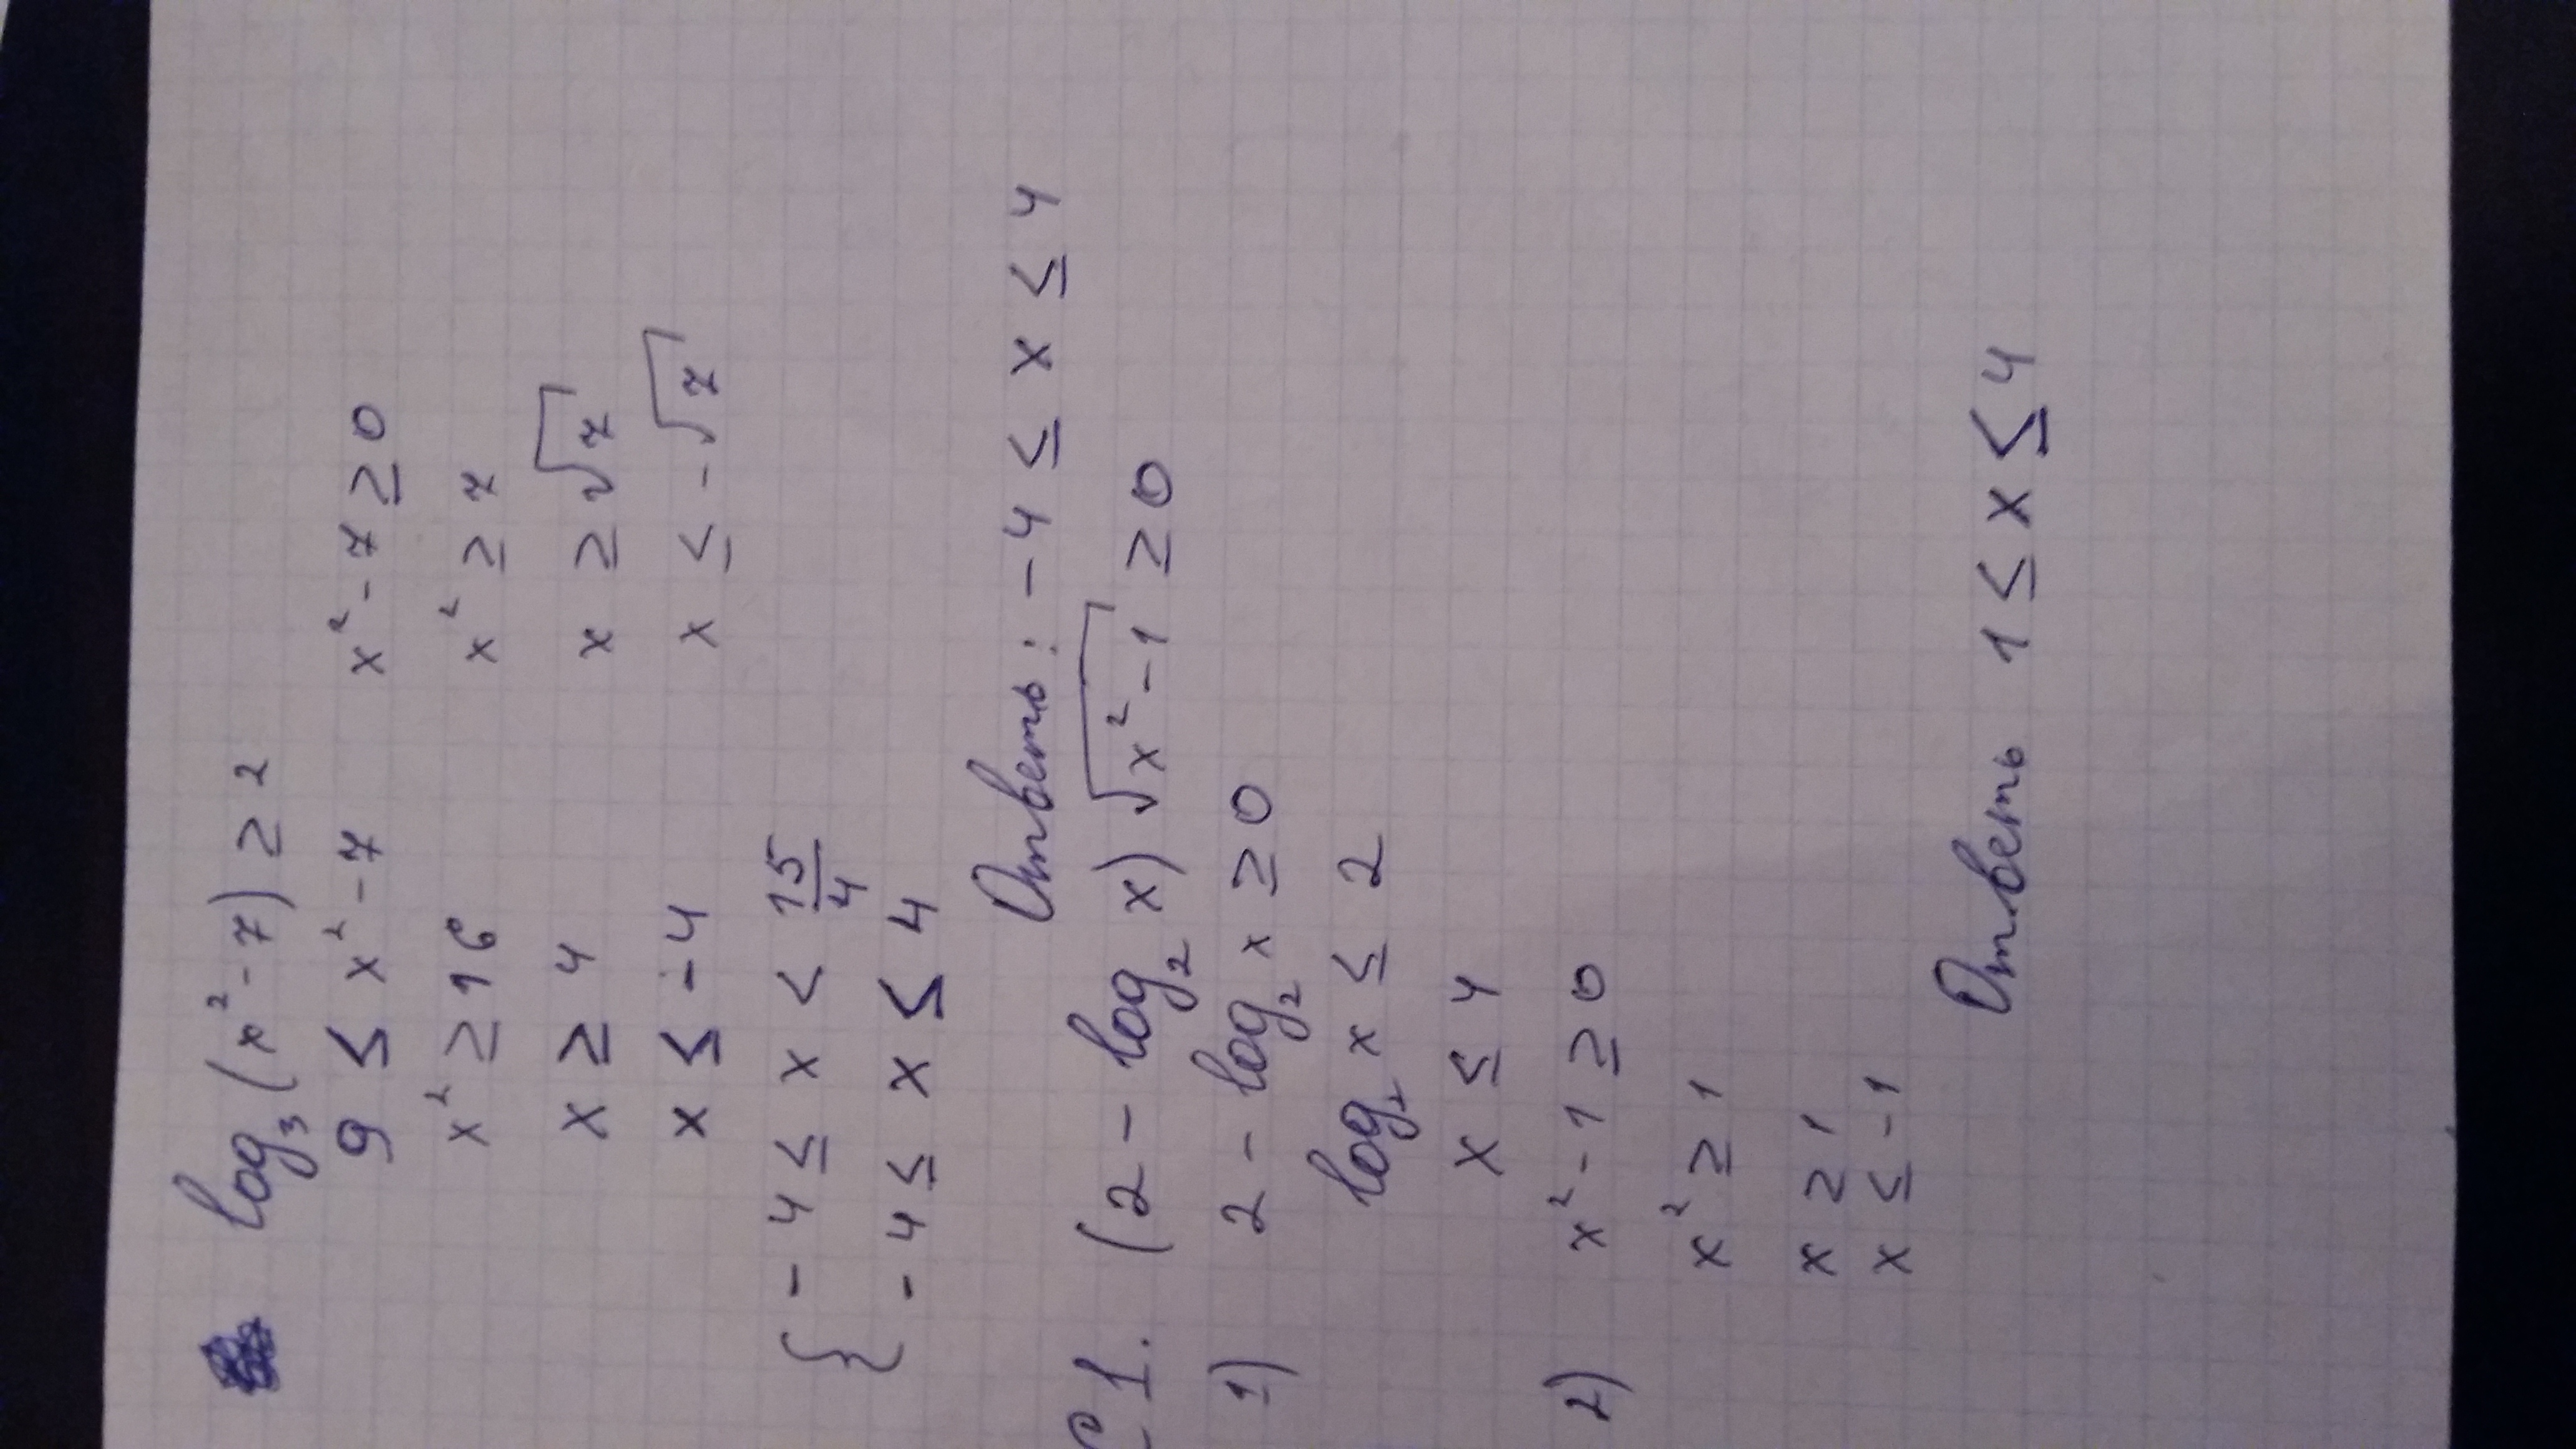 log₃(x²-7) ≥ 2
9 ≤ x²-7 x²-7 ≥ 0
x² ≥ 16 x² ≥ 7
x ≥ 4 x ≥ √7
x ≤ -4 x ≤ -√7
{ -4 ≤ x < 15/4
-4 ≤ x ≤ 4
Ответь: -4 ≤ x ≤ 4
C1. (2 - log₂ x) √x²-1 ≥ 0
1) 2 - log₂ x ≥ 0
log₂ x ≤ 2
x ≤ 4
2) x²-1 ≥ 0
x² ≥ 1
x ≥ 1
x ≤ -1
Ответь 1 ≤ x ≤ 4